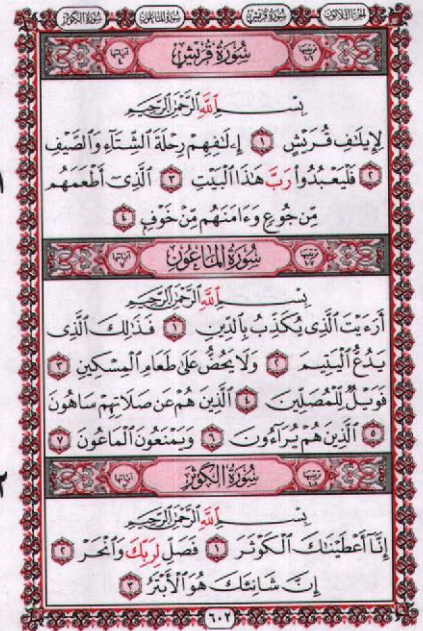 الجزء الثلاثون سورة قريش سورة الماعون سورة الكوثر
ترتيبها ١٠٦ سُورَةُ قُرَيْشٍ آياتها ٤
بِسْمِ ٱللَّهِ ٱلرَّحْمَٰنِ ٱلرَّحِيمِ
لِإِيلَٰفِ قُرَيْشٍ ١ إِۦلَٰفِهِمْ رِحْلَةَ ٱلشِّتَآءِ وَٱلصَّيْفِ
٢ فَلْيَعْبُدُوا۟ رَبَّ هَٰذَا ٱلْبَيْتِ ٣ ٱلَّذِىٓ أَطْعَمَهُم
مِّن جُوعٍ وَءَامَنَهُم مِّنْ خَوْفٍۭ ٤
ترتيبها ١٠٧ سُورَةُ المَاعُونِ آياتها ٧
بِسْمِ ٱللَّهِ ٱلرَّحْمَٰنِ ٱلرَّحِيمِ
أَرَءَيْتَ ٱلَّذِى يُكَذِّبُ بِٱلدِّينِ ١ فَذَٰلِكَ ٱلَّذِى
يَدُعُّ ٱلْيَتِيمَ ٢ وَلَا يَحُضُّ عَلَىٰ طَعَامِ ٱلْمِسْكِينِ ٣
فَوَيْلٌ لِّلْمُصَلِّينَ ٤ ٱلَّذِينَ هُمْ عَن صَلَاتِهِمْ سَاهُونَ
٥ ٱلَّذِينَ هُمْ يُرَآءُونَ ٦ وَيَمْنَعُونَ ٱلْمَاعُونَ ٧
ترتيبها ١٠٨ سُورَةُ الكَوْثَرِ آياتها ٣
بِسْمِ ٱللَّهِ ٱلرَّحْمَٰنِ ٱلرَّحِيمِ
إِنَّآ أَعْطَيْنَٰكَ ٱلْكَوْثَرَ ١ فَصَلِّ لِرَبِّكَ وَٱنْحَرْ ٢
إِنَّ شَانِئَكَ هُوَ ٱلْأَبْتَرُ ٣
٦٠٢